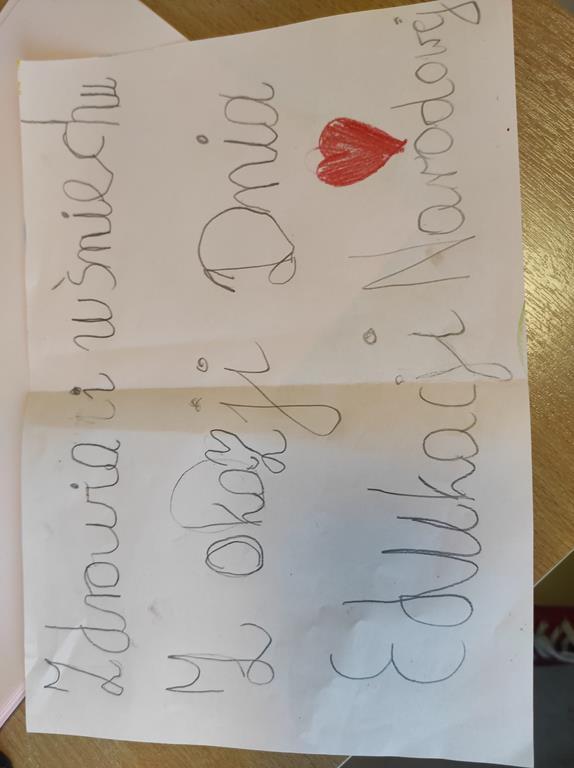 Zdrowia i uśmiechu
Z okazji Dnia
Edukacji Narodowej